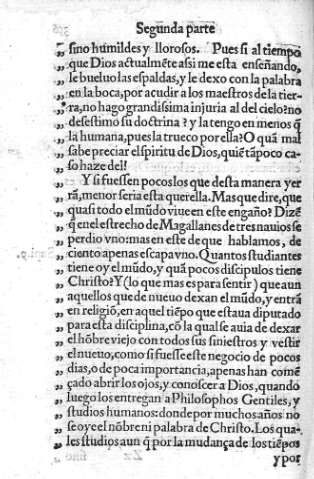 Segunda parte
„ sino humildes y llorosos. Pues si al tiempo
„ que Dios actualmẽte assi me esta enseñando,
„ le bueluo las espaldas, y le dexo con la palabra
„ en la boca, por acudir a los maestros de la tier-
„ ra, no hago grandissima injuria al del cielo? no
„ desestimo su doctrina? y la tengo en menos q̃
„ la humana, pues la trueco por ella? O quã mal
„ sabe preciar el spiritu de Dios, quiẽ tãpoco ca-
„ so haze del!
„ Y si fuessen pocos los que desta manera yer
„ rã, menor seria esta querella. Mas que dire, que
„ quasi todo el mũdo viue en este engaño? Dizẽ
„ q̃ en el estrecho de Magallanes de tres nauios se
„ perdio vno: mas en este de que hablamos, de
„ ciento apenas escapa vno. Quantos studiantes
„ tiene oy el mũdo, y quã pocos discipulos tiene
„ Christo? Y (lo que mas es para sentir) que aun
„ aquellos que de nueuo dexan el mũdo, y entrã
„ en religiõ, en aquel tiẽpo que estaua diputado
„ para esta disciplina, cõ la qual se auia de dexar
„ el hõbre viejo con todos sus siniestros y vestir
„ el nueuo, como si fuesse este negocio de pocos
„ dias, o de poca importancia, apenas han comẽ
„ çado abrir los ojos, y conoscer a Dios, quando
„ luego los entregan a Philosophos Gentiles, y
„ studios humanos: donde por muchos años no
„ se oye el nõbre ni palabra de Christo. Los qua-
„ les studios aun q̃ por la mudança de los tiẽpos
y por